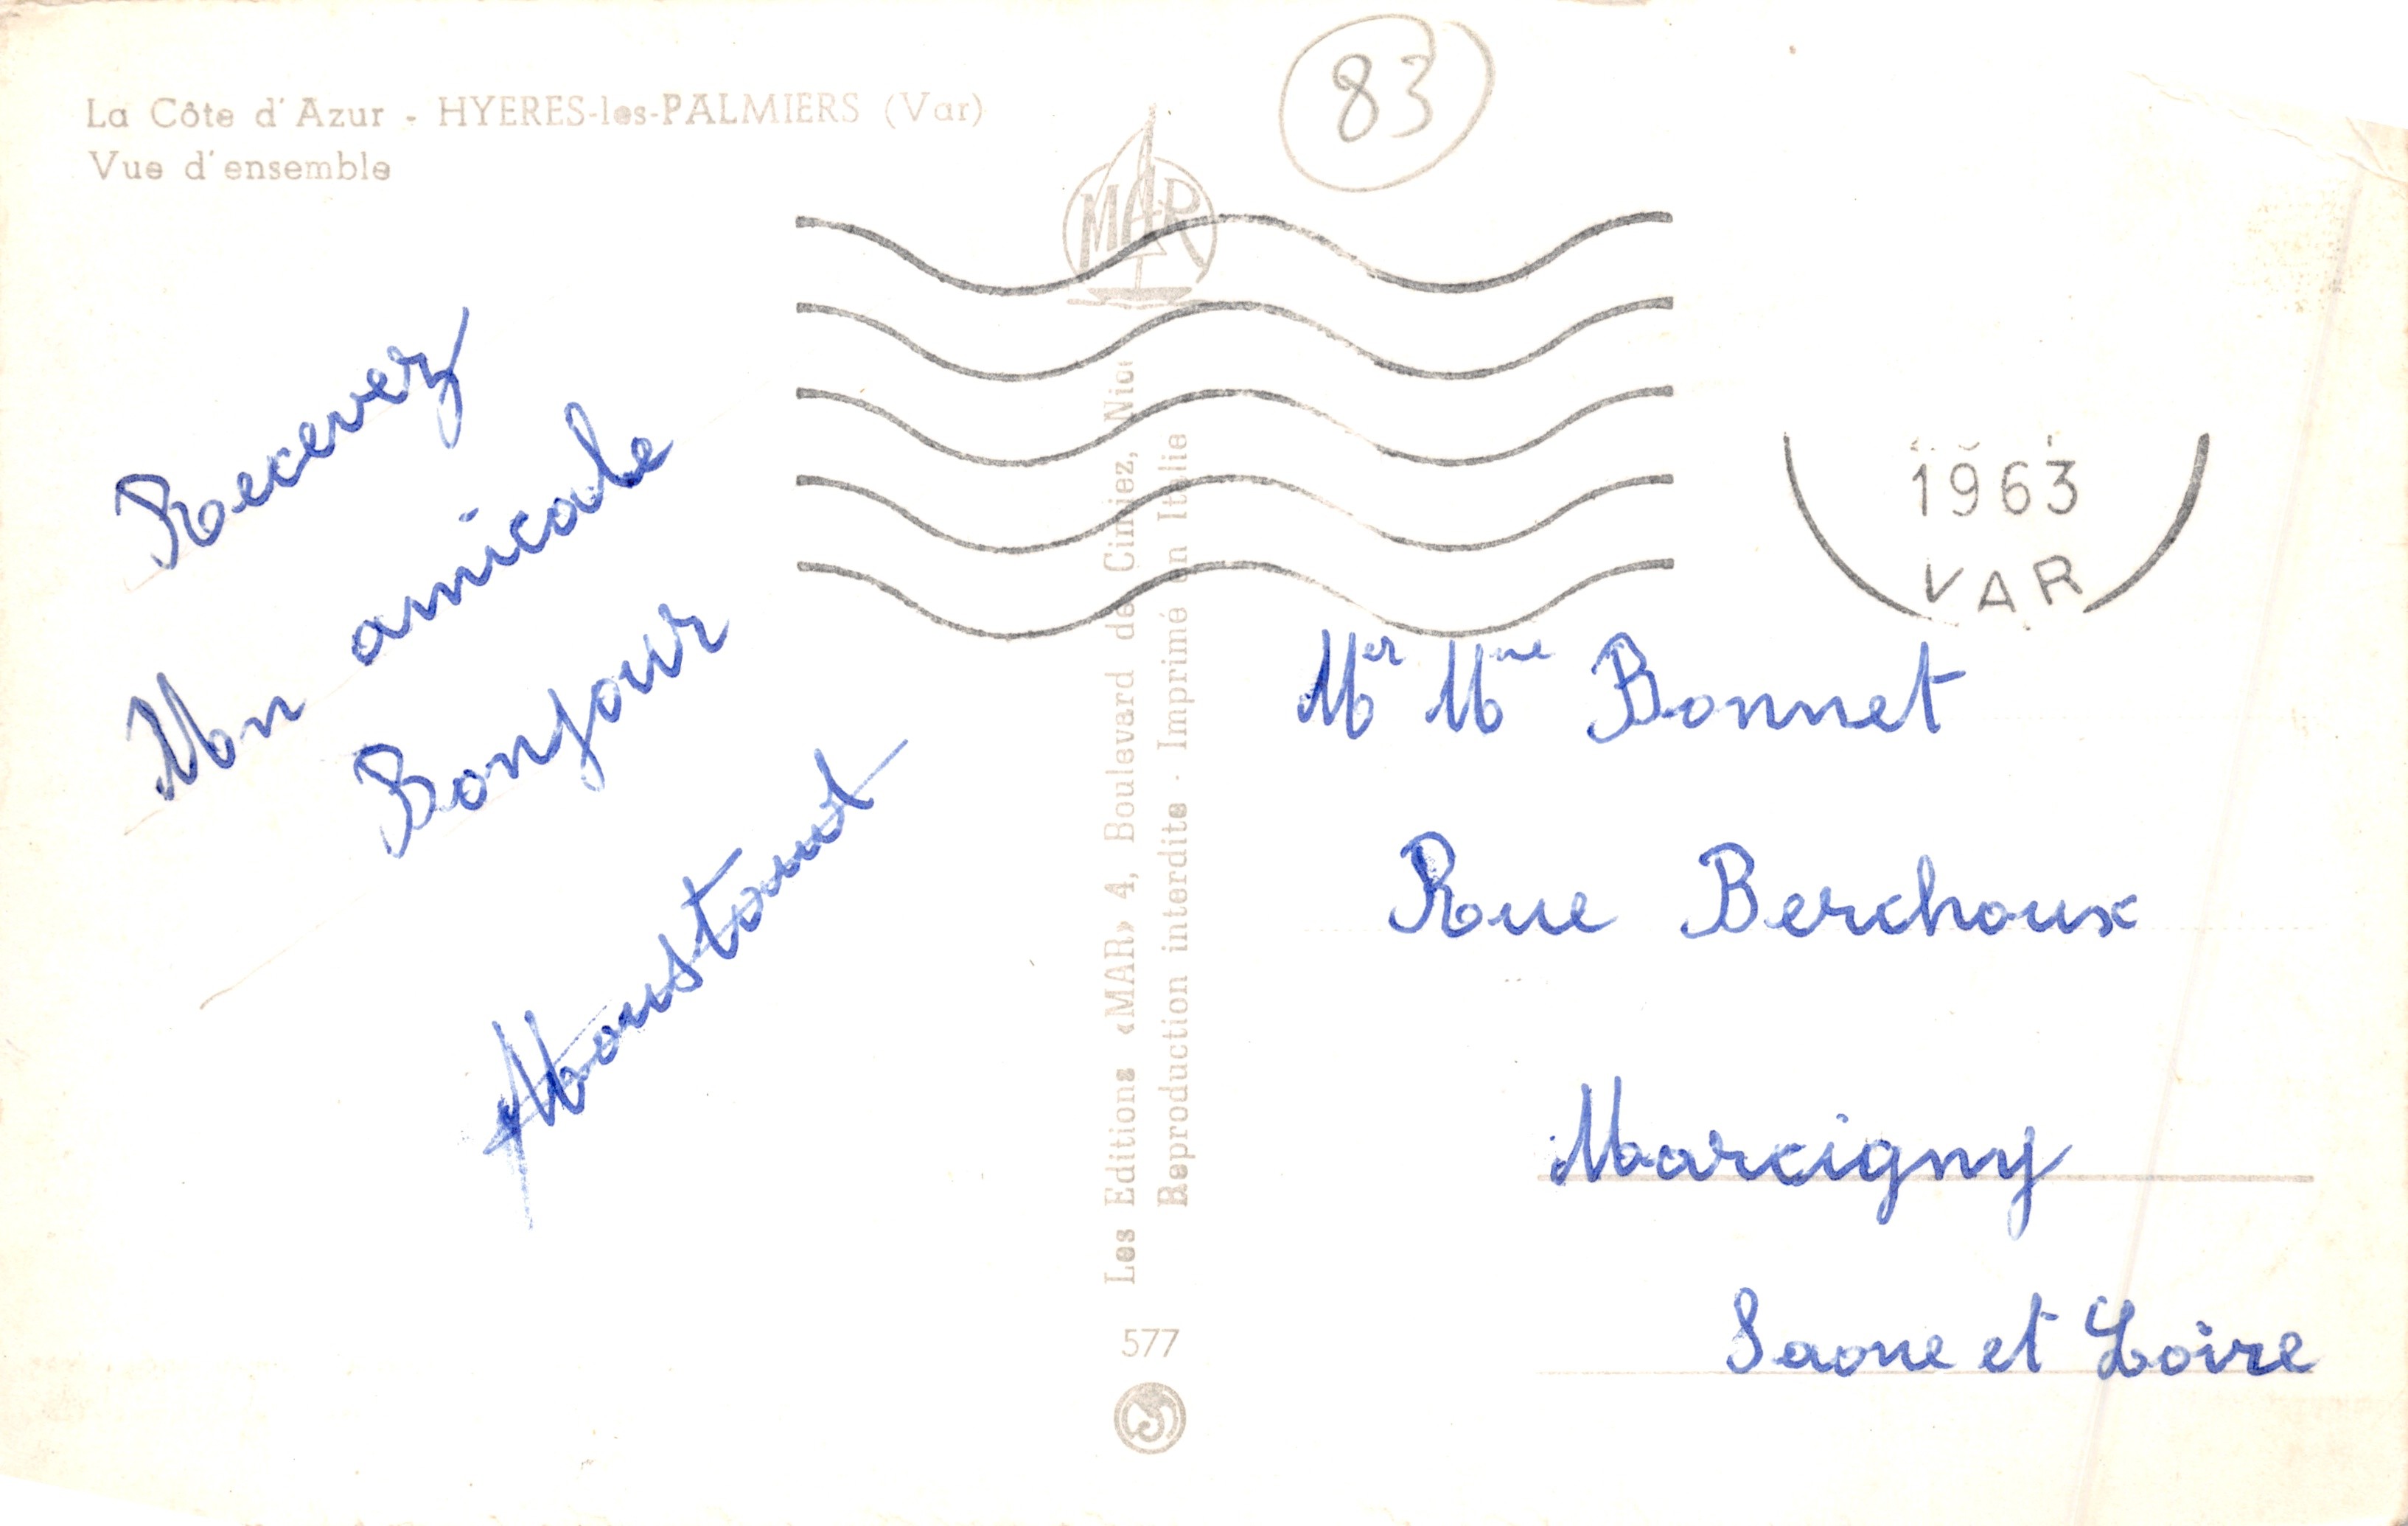 La Côte d'Azur - HYERES-les-PALMIERS (Var)
Vue d'ensemble
83
MAR
1963
VAR
Recevez
Mon amicale
Bonjour
Les Editions «MAR» 4, Boulevard de Cimiez, Nice
Reproduction interdite - Imprimé en Italie
577
Mr Mme Bonnet
Rue Berchoux
Marcigny
Saone et Loire